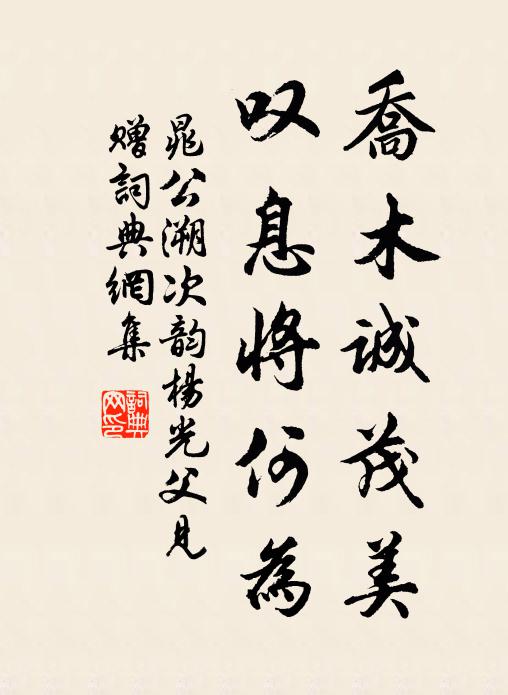 喬木誠茂美
叹息將何為
晁公溯次韵楊光父見
贈詞典網集
詞典
网印